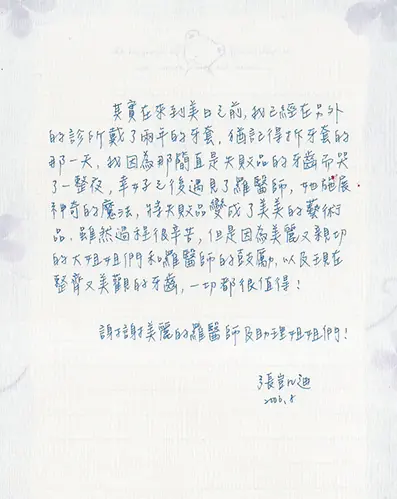 其實在來到美日之前,我已經在另外
的診所戴了兩年的牙套,猶記得拆牙套的
那一天,我因為那簡直是失敗品的牙齒而哭
了一整夜,幸好之後遇見了羅醫師,她施展
神奇的魔法,將失敗品變成了美美的藝術
品。雖然過程很辛苦,但是因為美麗又親切
的大姐姐們和羅醫師的鼓勵,以及現在
整齊又美觀的牙齒,一切都很值得!
謝謝美麗的羅醫師及助理姐姐們!
張凱迪